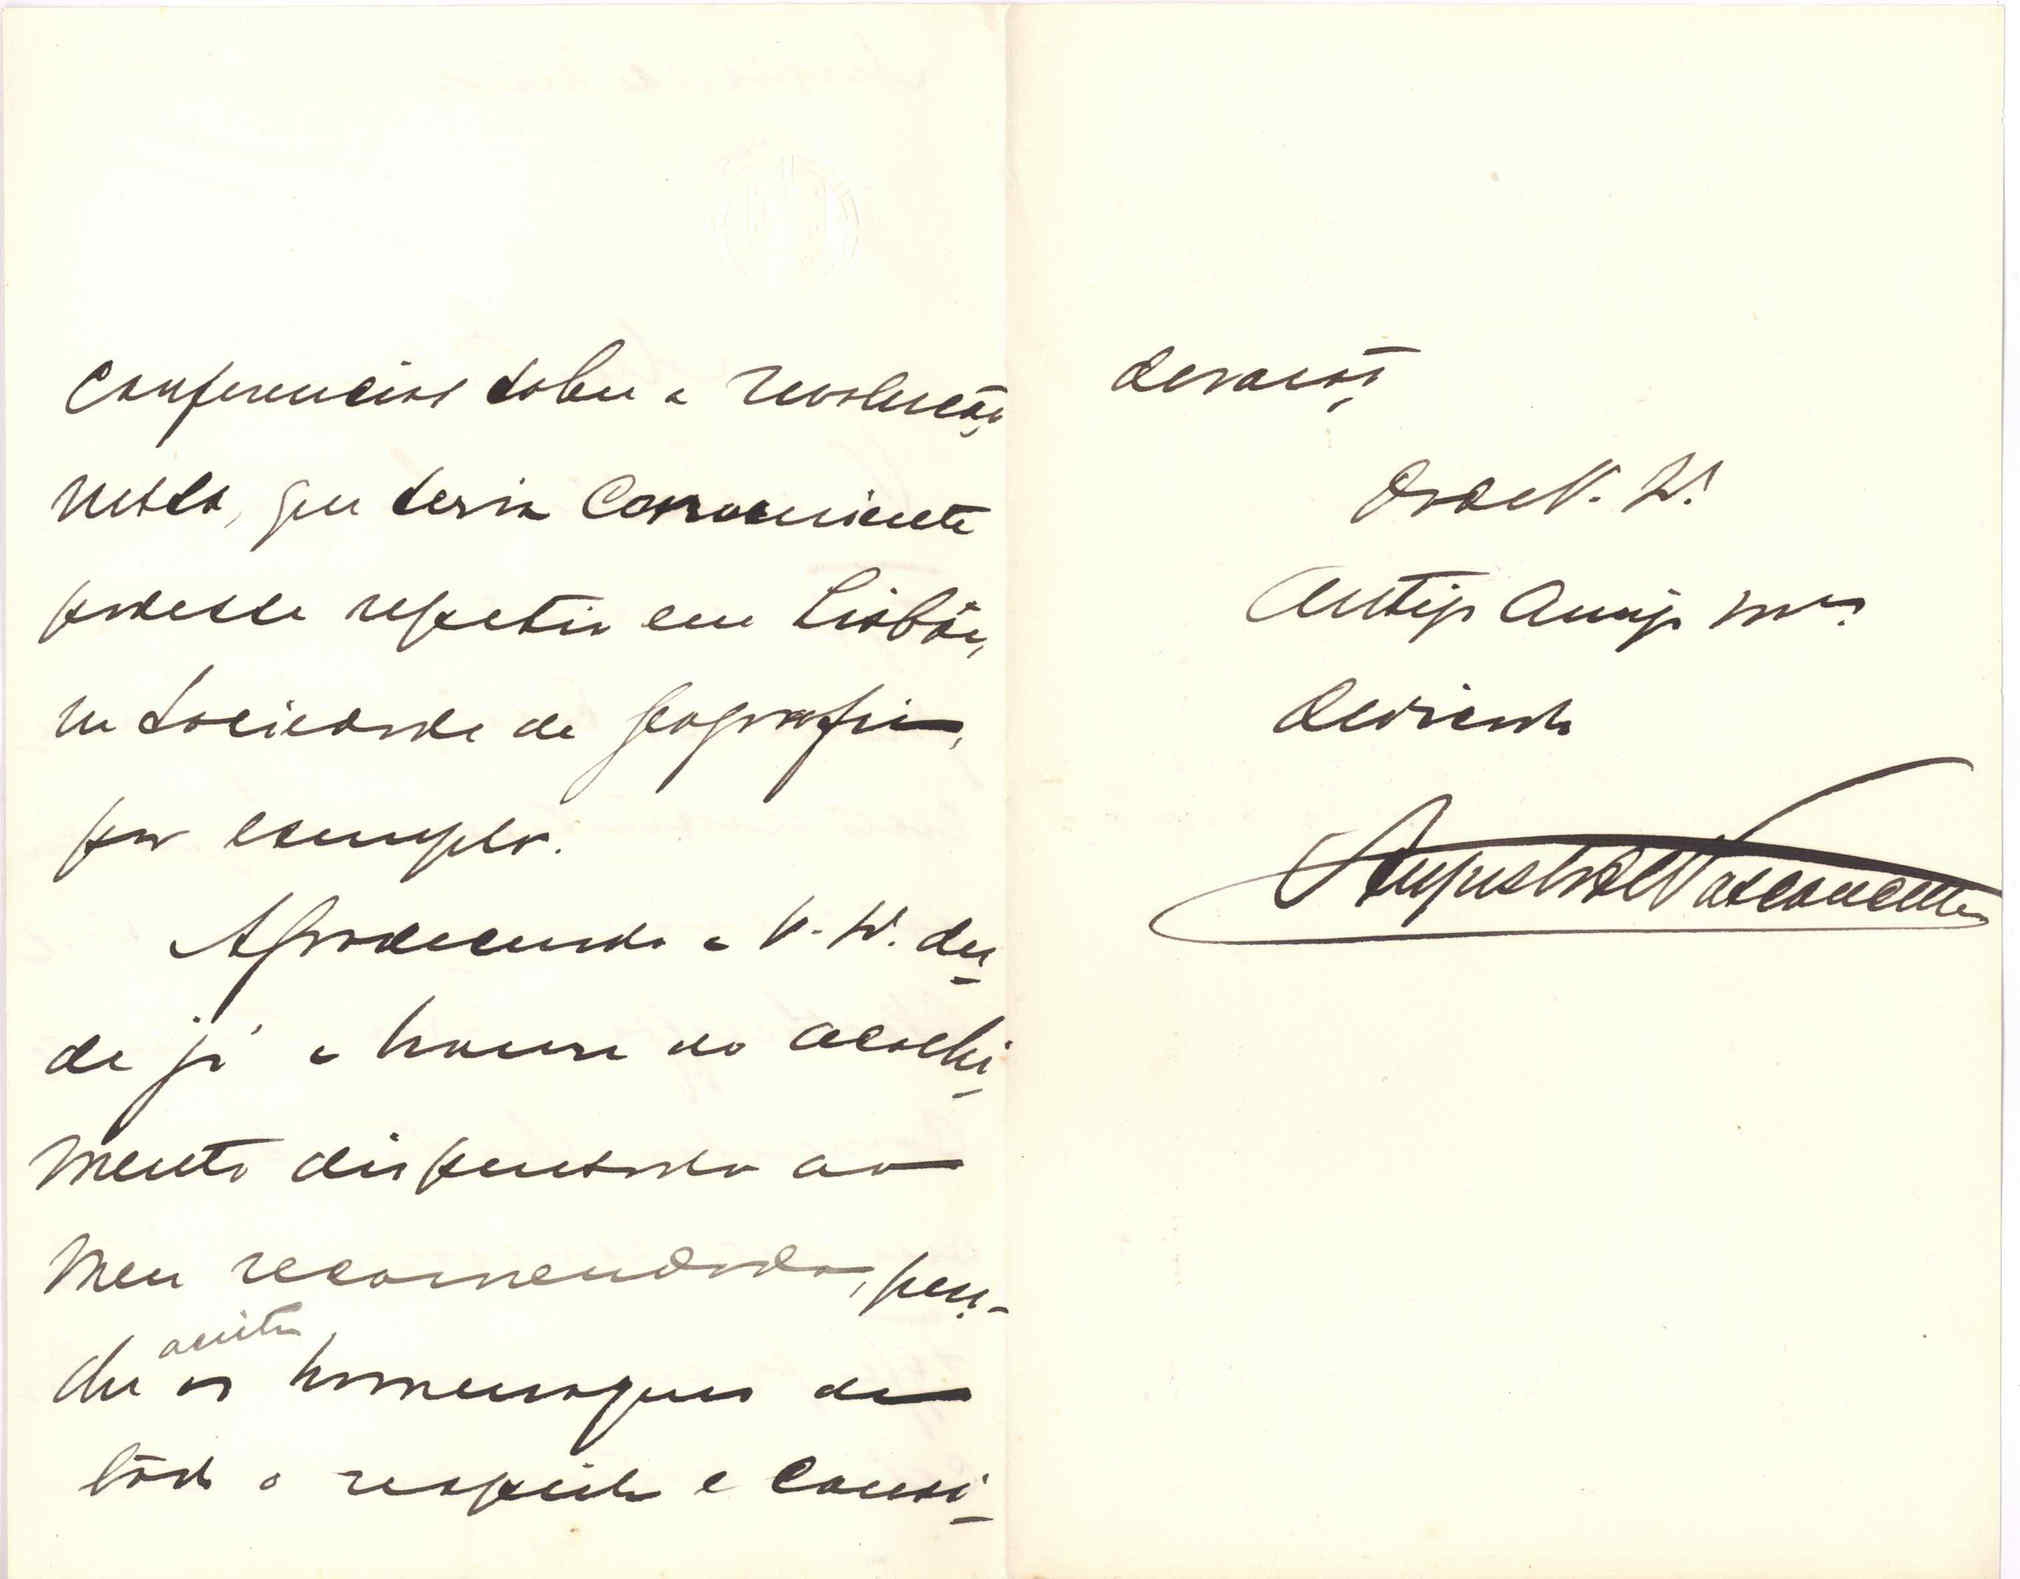 conferencias sobre a revolução
russa, que seria conveniente
podesse repetir em Lisbôa,
na Sociedade de Geografia,
por exemplo.
Agradecendo a V. Ex.ª des-
de já a honra do acolhi-
mento dispensado ao
meu recomendado, peço-
lhe aceite, as homenagens de
tôdo o respeito e consi-
deração,
De V. Ex.ª
Antigo Amigo m.to
dedicado
Augusto de Vasconcellos